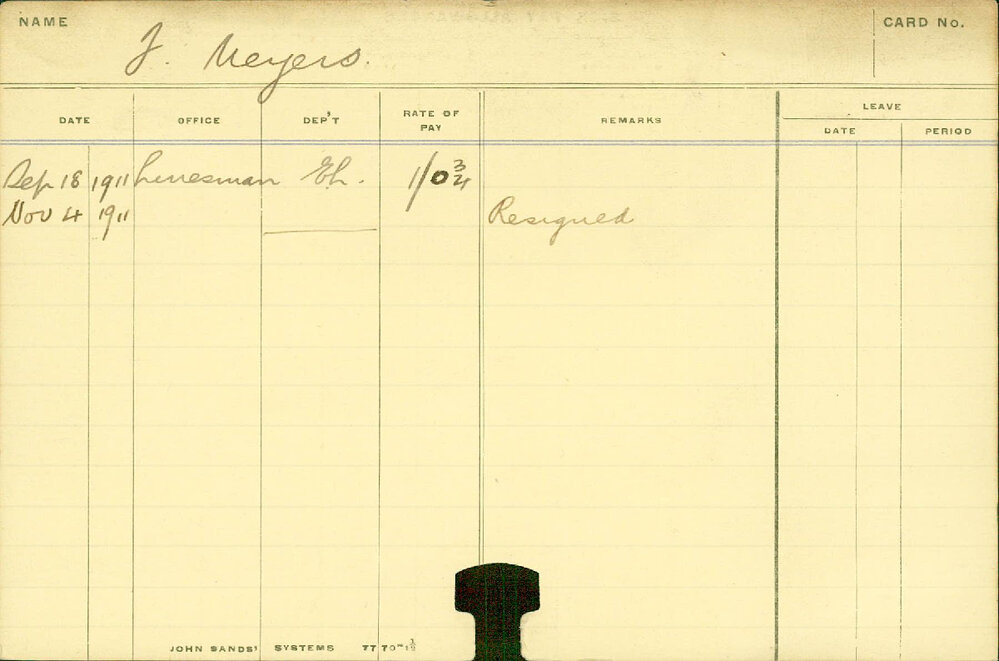 NAME
J. Meyers.
CARD No.
DATE OFFICE DEP'T RATE OF PAY REMARKS LEAVE
DATE PERIOD
Sep 18 1911 Linesman El. 1/0 3/4
Nov 4 1911 Resigned
JOHN SANDS' SYSTEMS 77 70